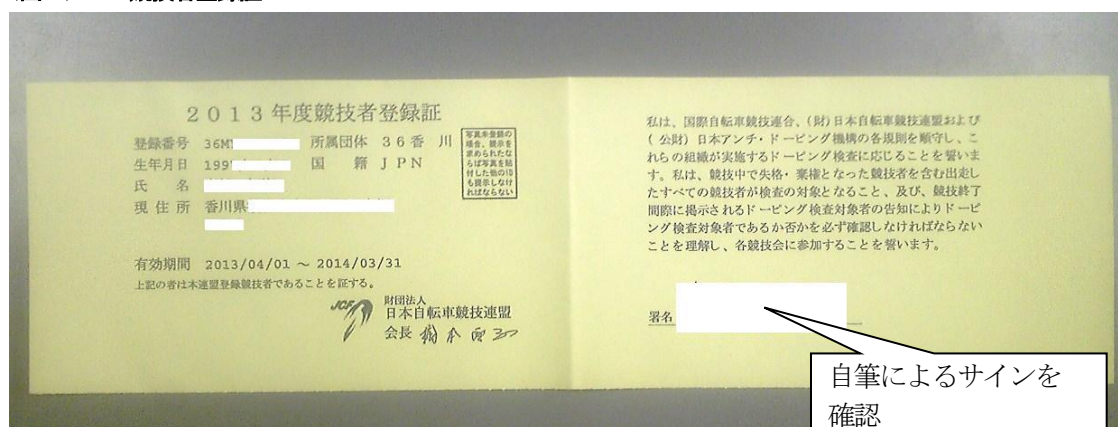 2013年度競技者登録証
登録番号 36M 所属団体 36香 川
生年月日 199 国 籍 JPN
氏 名
現住所 香川県
写真未登録の
場合、提示を
求められたな
らば写真を貼
付した他のID
も提示しなけ
ればならない
有効期間 2013/04/01 ～ 2014/03/31
上記の者は本連盟登録競技者であることを証する。
JCF
財団法人
日本自転車競技連盟
会長
私は、国際自転車競技連合、(財)日本自転車競技連盟および
(公財) 日本アンチ・ドーピング機構の各規則を順守し、こ
れらの組織が実施するドーピング検査に応じることを誓いま
す。私は、競技中で失格・棄権となった競技者を含む出走し
たすべての競技者が検査の対象となること、及び、競技終了
間際に掲示されるドーピング検査対象者の告知によりドーピ
ング検査対象者であるか否かを必ず確認しなければならない
ことを理解し、各競技会に参加することを誓います。
署名
自筆によるサインを
確認